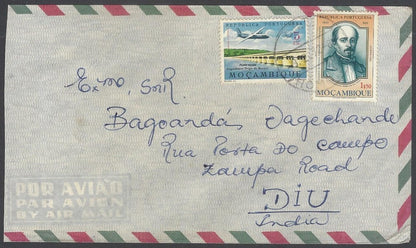 REPÚBLICA PORTUGUESA
MOÇAMBIQUE
REPÚBLICA PORTUGUESA
1$50
MOÇAMBIQUE
Exmo, Snr.
Bagoandás Jagechande
Rua Porta do campo
Zampa Road
DIU
India
POR AVIÃO
PAR AVION
BY AIR MAIL